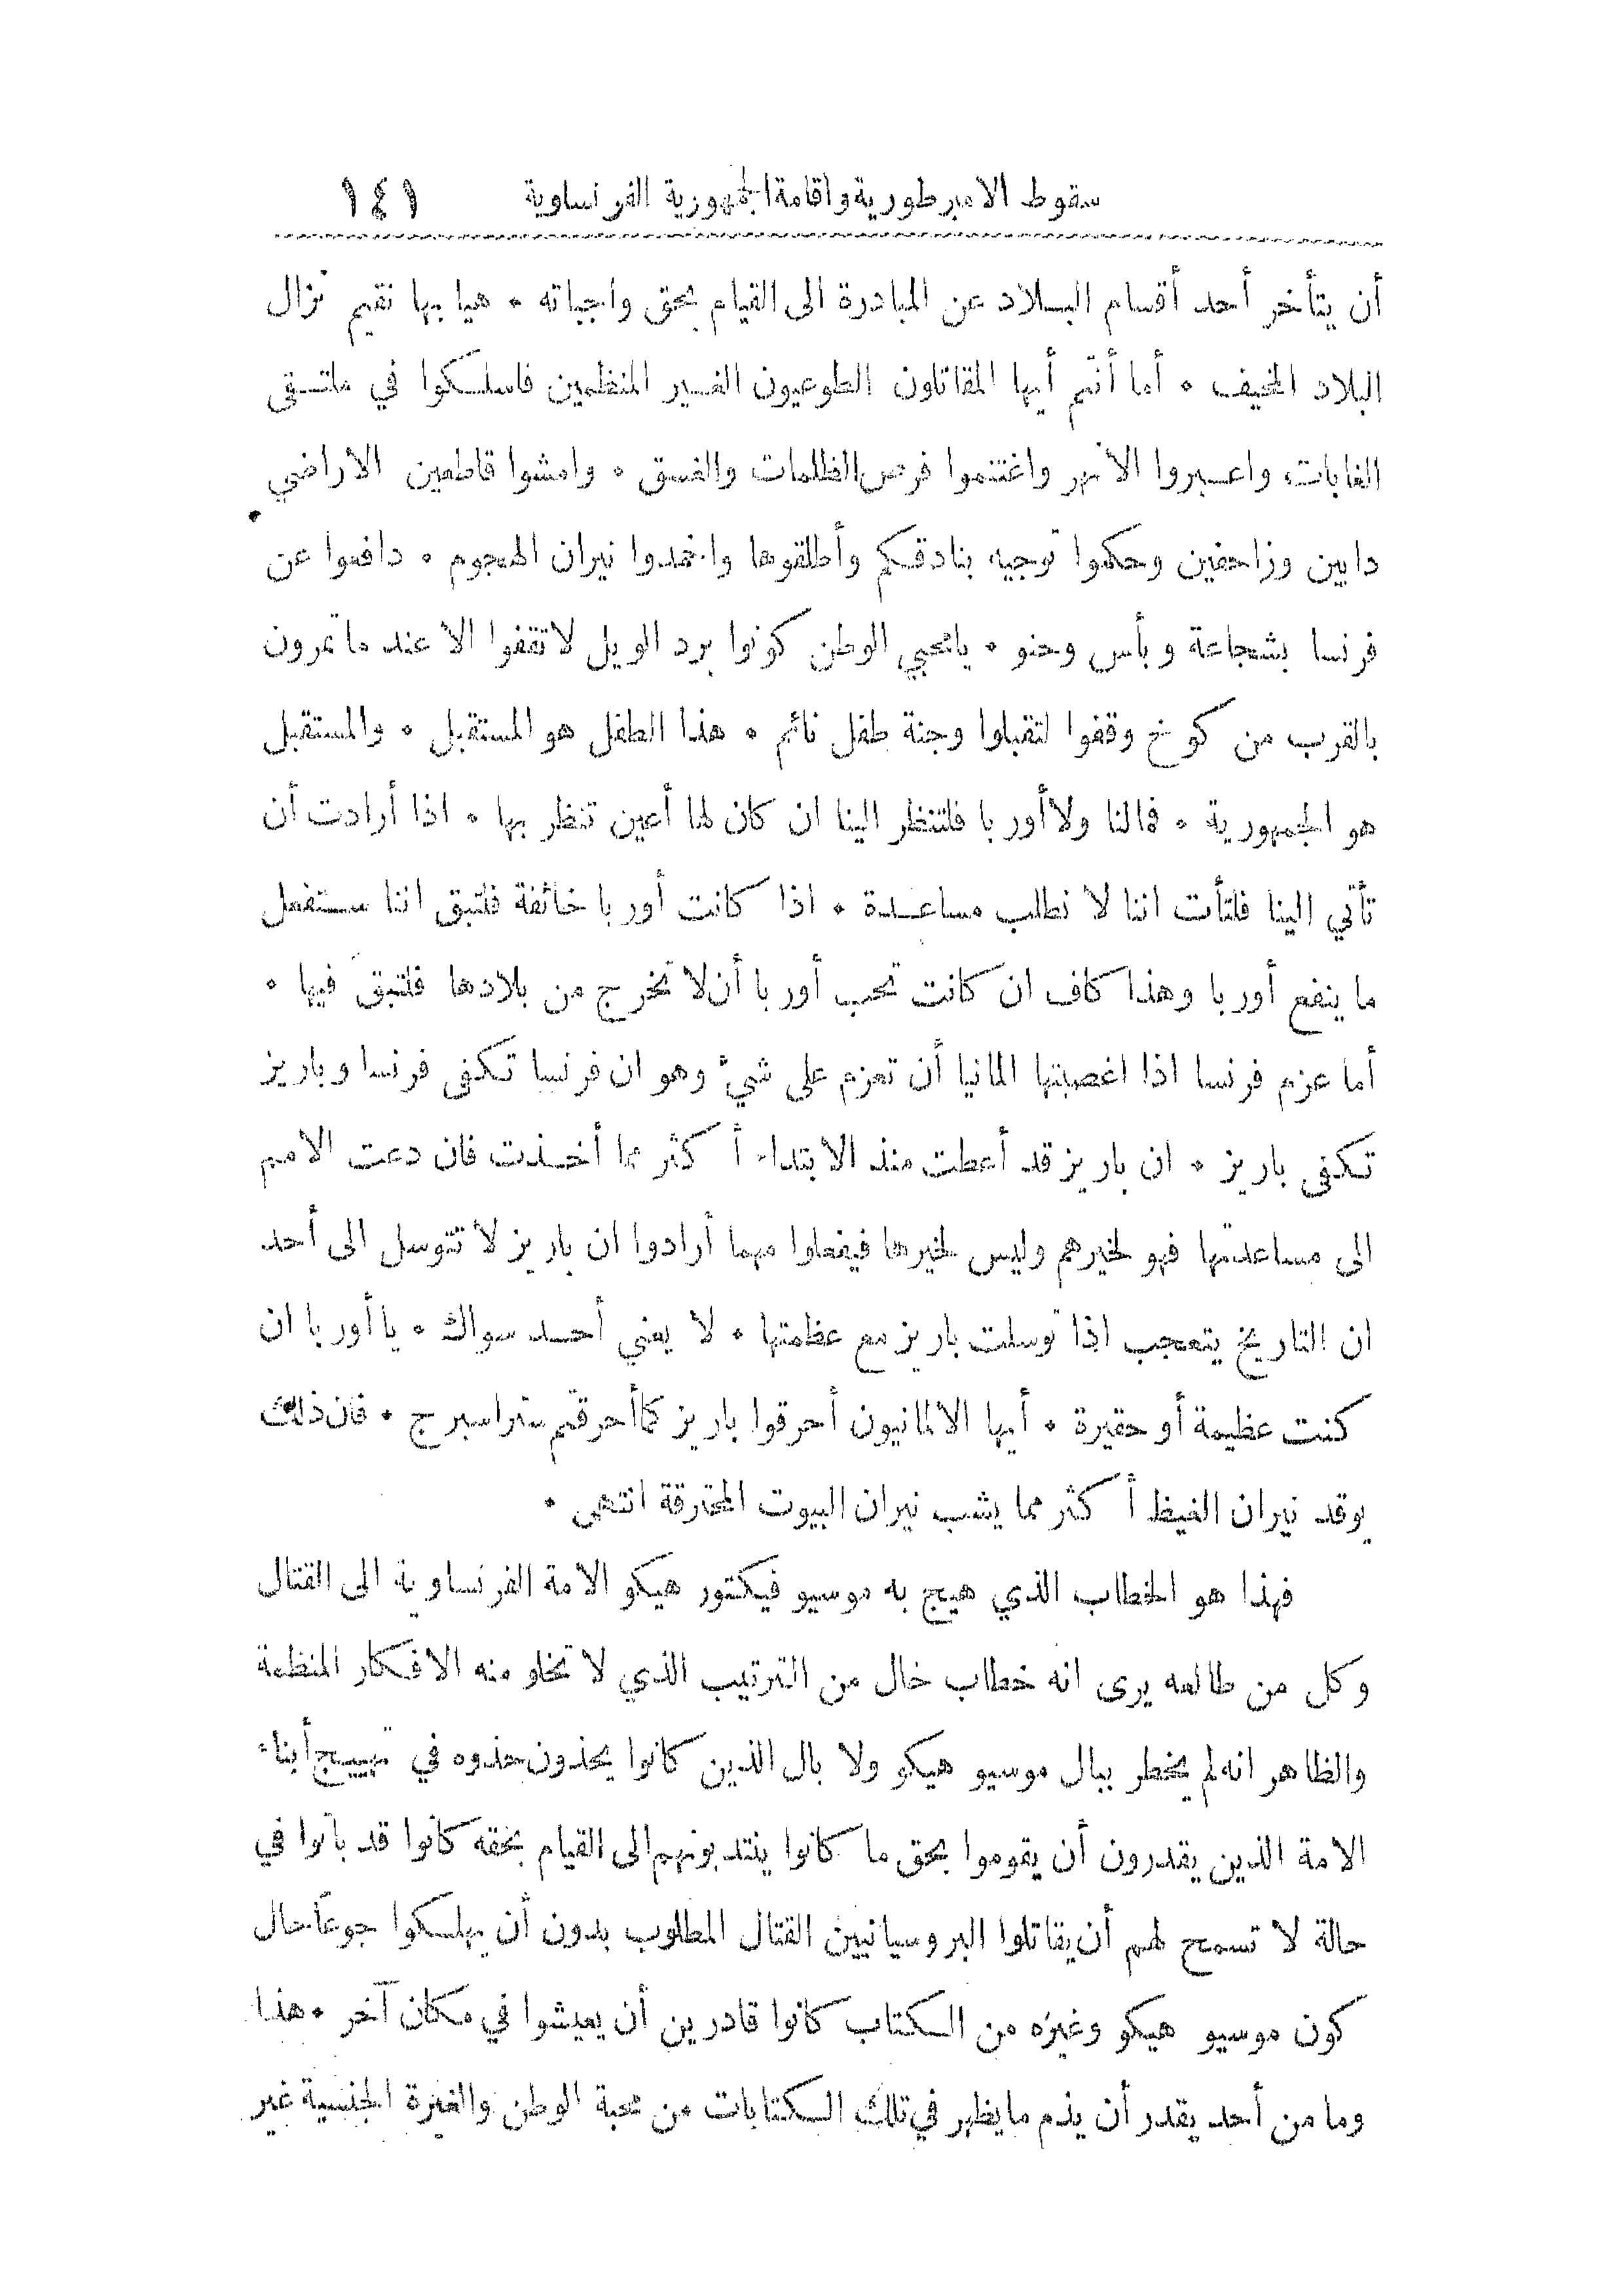 سقوط الامبرطورية واقامة الجمهورية الفرنساوية ١٤١
أن يتأخر أحد أقسام البلاد عن المبادرة الى القيام بحق واجباته ٠ هيا بها نقيم نزال
البلاد المخيف ٠ أما أنتم أيها المقاتلون الطوعيون الغير المنظمين فاسلكوا في ملتقى
الغابات واعبروا الانهر واغتنموا فرص الظلمات والغسق ٠ وامشوا قاطعين الاراضي
دابين وزاحفين وحكموا توجيه بنادقكم وأطلقوها واخمدوا نيران الهجوم ٠ دافعوا عن
فرنسا بشجاعة وبأس وحنو ٠ يامحبي الوطن كونوا برد الويل لاتقفوا الا عند ماتمرون
بالقرب من كوخ وقفوا لتقبلوا وجنة طفل نائم ٠ هذا الطفل هو المستقبل ٠ والمستقبل
هو الجمهورية ٠ فمالنا ولأوربا فلتنظر الينا ان كان لها أعين تنظر بها ٠ اذا أرادت أن
تأتي الينا فلتأت اننا لا نطلب مساعدة ٠ اذا كانت أوربا خائفة فلتبق اننا سنفعل
ما ينفع أوربا وهذا كاف ان كانت تحب أوربا أن لا تخرج من بلادها فلتبق فيها ٠
أما عزم فرنسا اذا اغصبتها المانيا أن تعزم على شيء وهو ان فرنسا تكفي فرنسا وباريز
تكفي باريز ٠ ان باريز قد أعطت منذ الابتداء أكثر مما أخذت فان دعت الامم
الى مساعدتها فهو لخيرهم وليس لخيرها فيفعلوا مهما أرادوا ان باريز لا تتوسل الى أحد
ان التاريخ يتعجب اذا توسلت باريز مع عظمتها ٠ لا يعني أحد سواك ٠ يا أوربا ان
كنت عظيمة أو حقيرة ٠ أيها الالمانيون أحرقوا باريز كما أحرقتم ستراسبرج ٠ فان ذلك
يوقد نيران الغيظ أكثر مما يشب نيران البيوت المحترقة انتهى ٠
فهذا هو الخطاب الذي هيج به موسيو فيكتور هيكو الامة الفرنساوية الى القتال
وكل من طالعه يرى انه خطاب خال من الترتيب الذي لا تخلو منه الافكار المنظمة
والظاهر انه لم يخطر ببال موسيو هيكو ولا بال الذين كانوا يحذون حذوه في تهييج أبناء
الامة الذين يقدرون أن يقوموا بحق ما كانوا ينتدبونهم الى القيام بحقه كانوا قد باتوا في
حالة لا تسمح لهم أن يقاتلوا البروسيانيين القتال المطلوب بدون أن يهلكوا جوعاً حال
كون موسيو هيكو وغيره من الكتاب كانوا قادرين أن يعيشوا في مكان آخر ٠ هذا
وما من أحد يقدر أن يذم ما يظهر في تلك الكتابات من محبة الوطن والغيرة الجنسية غير